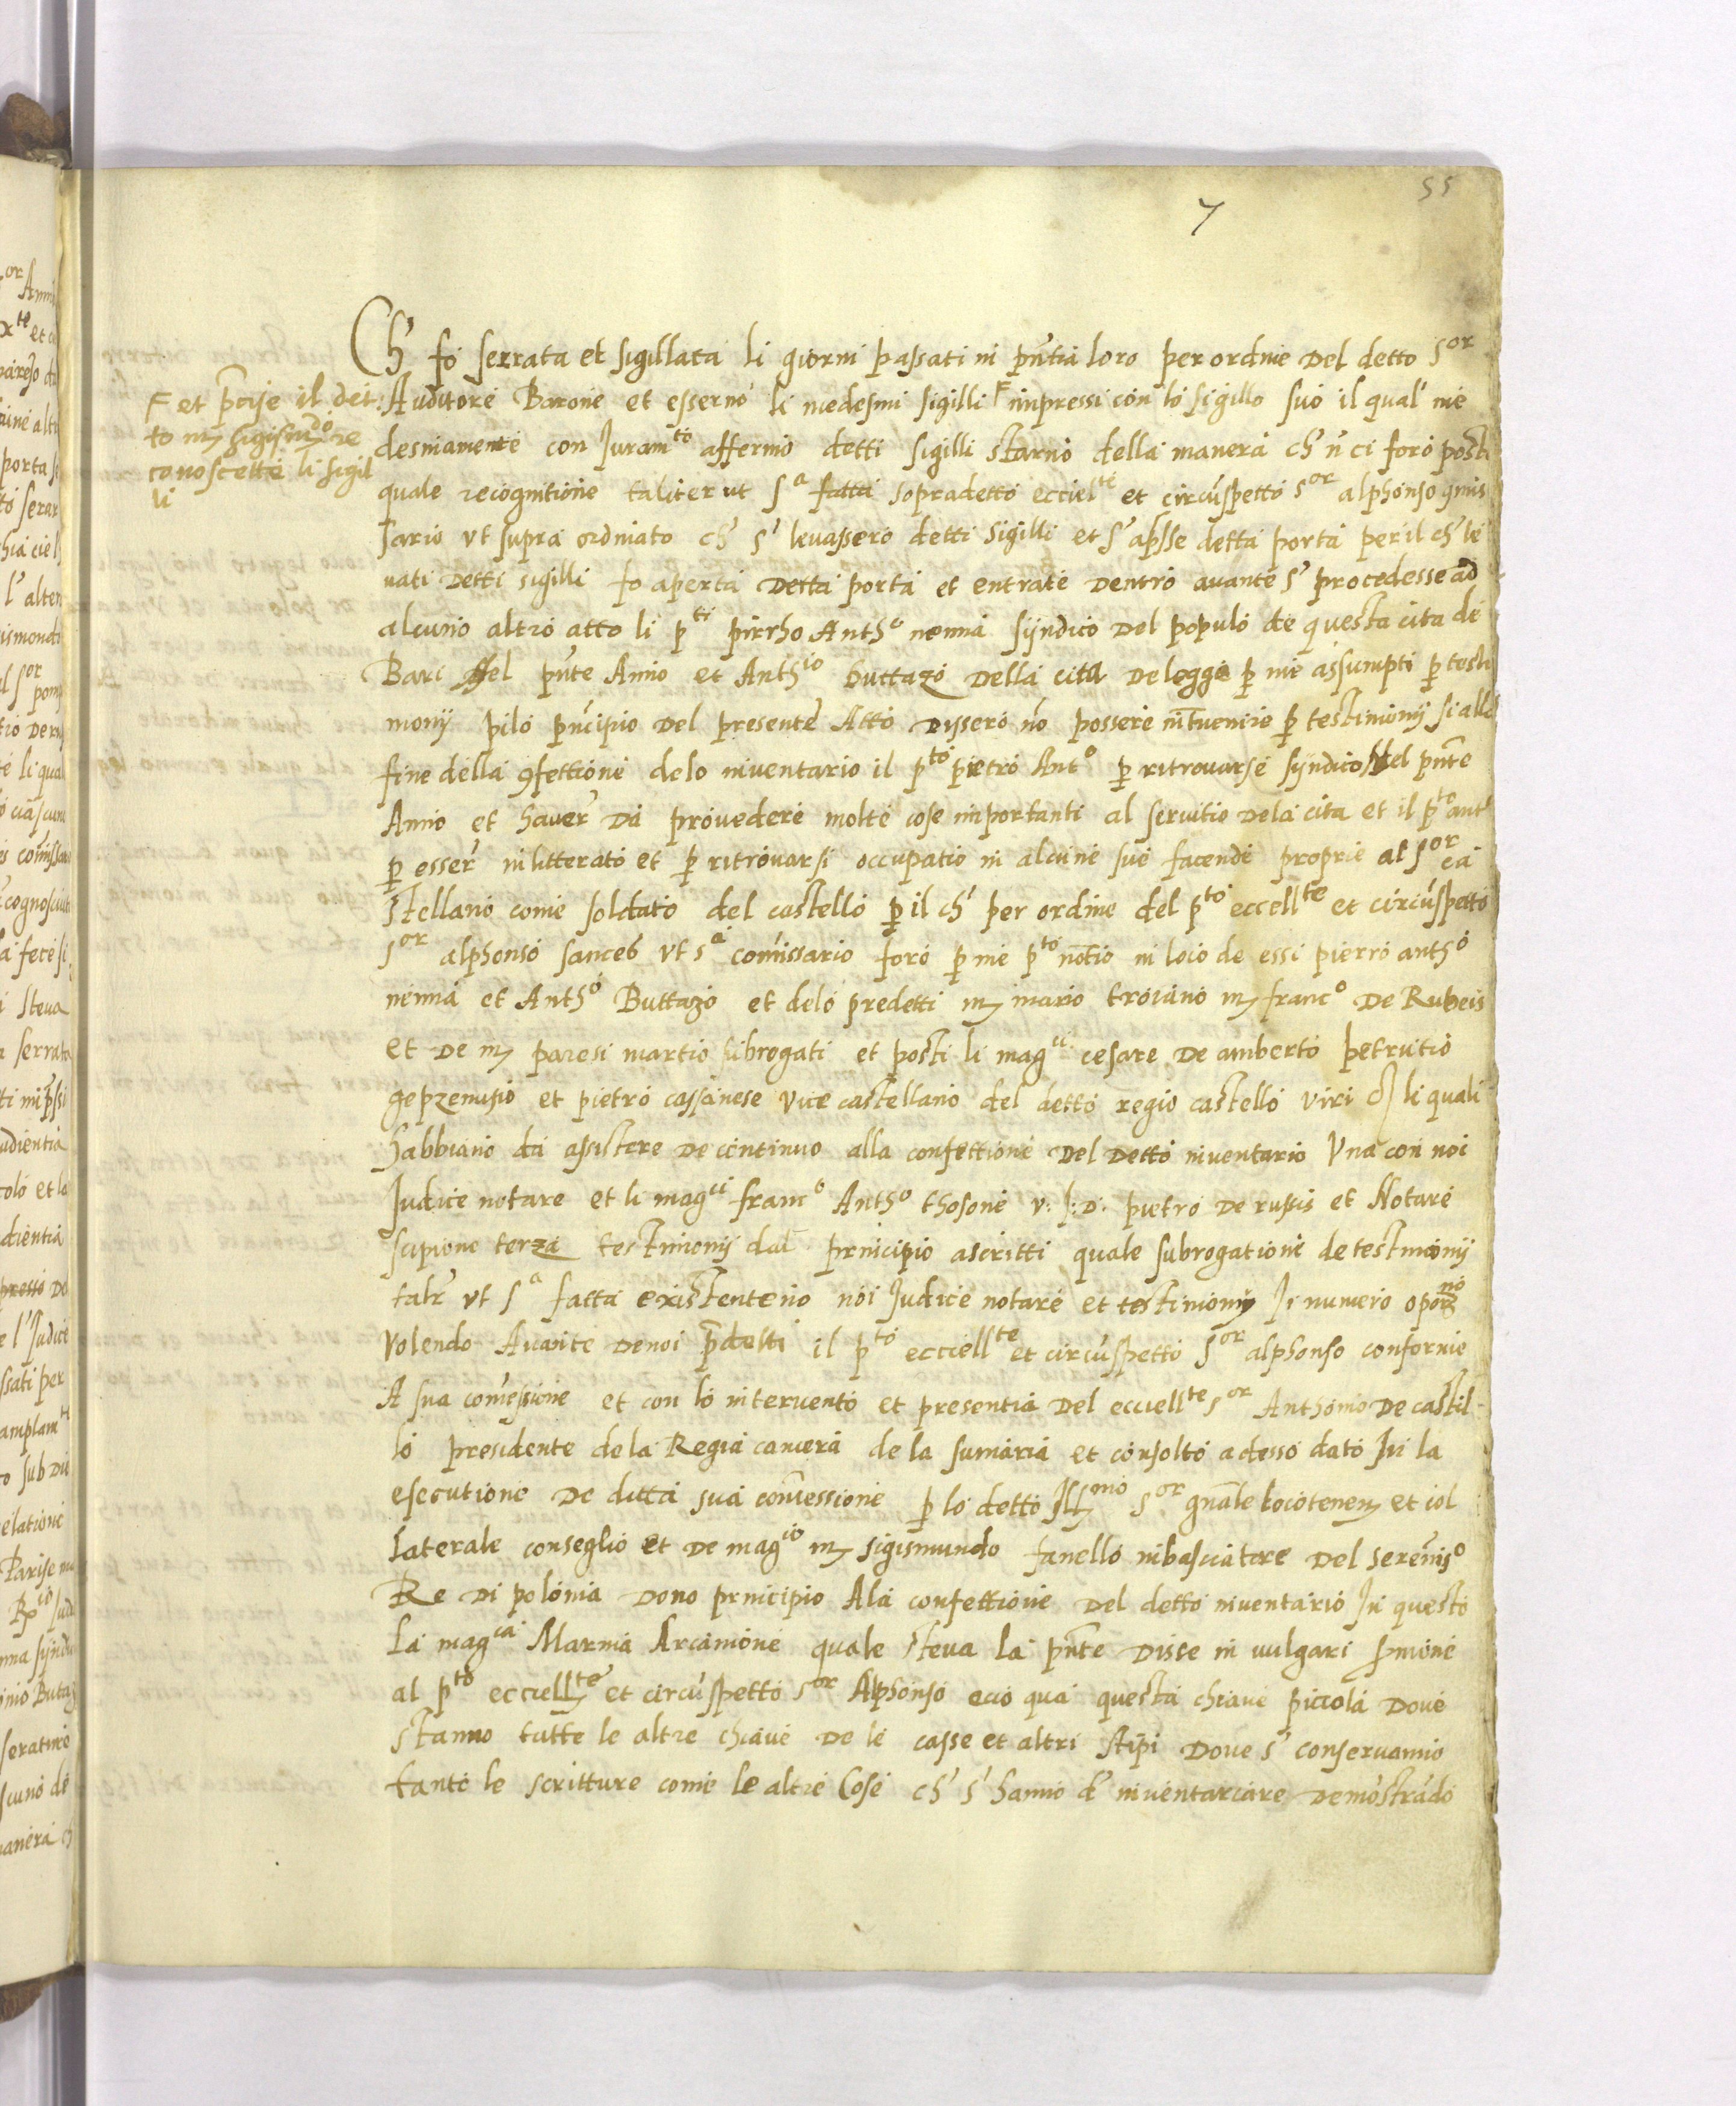 55
7
Ch' fo serrata et sigillata li giorni passati in pñtia loro per ordine del detto Sor
Auditore Barone et esserno li medesmi sigilli F impressi con lo sigillo suo il qual' me
desmamente con Juramto affermo detti sigilli starno della manera ch' ñ ci foro posti
quale recognitione taliter ut sa fatta sopradetto eccielte et circuspetto sor alphonso 9mis
sario ut supra ordinato ch' s' levassero detti sigilli et s' apsse detta porta per il ch' le
vati detti sigilli fo aperta detta porta et entrate dentro avante s' procedesse ad
alcuno altro atto li pti pirrho Antho nenna syndico del populo de questa cita de
Bari del pñte Anno et Anthio buttazo della cita de legge p me assumpti p testi
monij pilo pñcipio del presente Atto dissero no possere intvenire p testimonij si alla
fine della 9fettione delo inventario il pto pietro Anto p ritrovarse syndico del pñte
Anno et haver da provedere molte cose importanti al servitio dela cita et il pto anto
p esser inlitterato et p ritrovarsi occupatio in alcune sue facende proprie al sor ca
stellano come soldato del castello p il ch' per ordine del pto eccellte et circuspetto
sor alphonso sances ut sa comissario foro p me pto notio in loco de essi pierro antho
nenna et Antho Buttazo et delo predetti m mario troiano m franco de Rubeis
et de m paresi martio subrogati et posti li magci cesare de amberto petrutio
gepzemusio et pietro cassanese vice castellano del detto regio castello viri li quali
habbiano da assistere de continuo alla confettione del detto inventario una con noi
Judice notare et li magci franco Antho thosone v: J: D: pietro de russis et Notare
scipione terza testimonij dal principio ascritti quale subrogatione de testimonij
talr ut sa fatta existenteno noi Judice notare et testimonij In numero oporno
volendo Avante de noi pdetti il pto eccielte et circuspetto sor alphonso conforme
A sua comessione et con lo intervento et presentia del eccielte sor Anthonio de castil
lo presidente de la Regia camera de la sumaria et consolto adesso dato In la
esecutione de ditta sua comessione p lo detto Illmo sor gnale locotenen et col
laterale conseglio et de magco m sigismundo fanello inbasciatore del serenisso
Re di polonia dono principio Ala confettione del detto inventario In questo
La magca Marina Arcamone quale steva la pñte disse in vulgari smone
al pto eccielte et circuspetto sor Alphonso ecco qua questa chiave piccola dove
stanno tutte le altre chiave de le casse et altri stipi dove s' conservanno
tante le scritture come le altre Cose ch' s' hanno d' inventariare demostrado
F et pcise il det
to m sigismdo re
conoscette li sigil
li